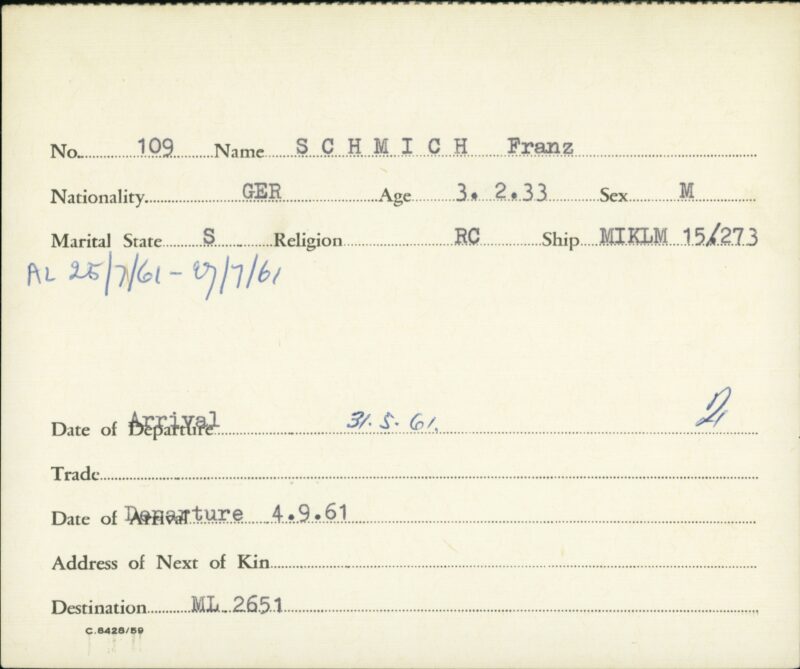 No. 109 Name SCHMICH Franz
Nationality GER Age 3. 2.33 Sex M
Marital State S Religion RC Ship MIKLM 15/.273
AL 25/7/61 - 27/7/61
Arrival
Date of Departure 31.5.61.
Trade
Date of Arrival Departure 4.9.61
Address of Next of Kin
Destination ML 2651
C.8428/59